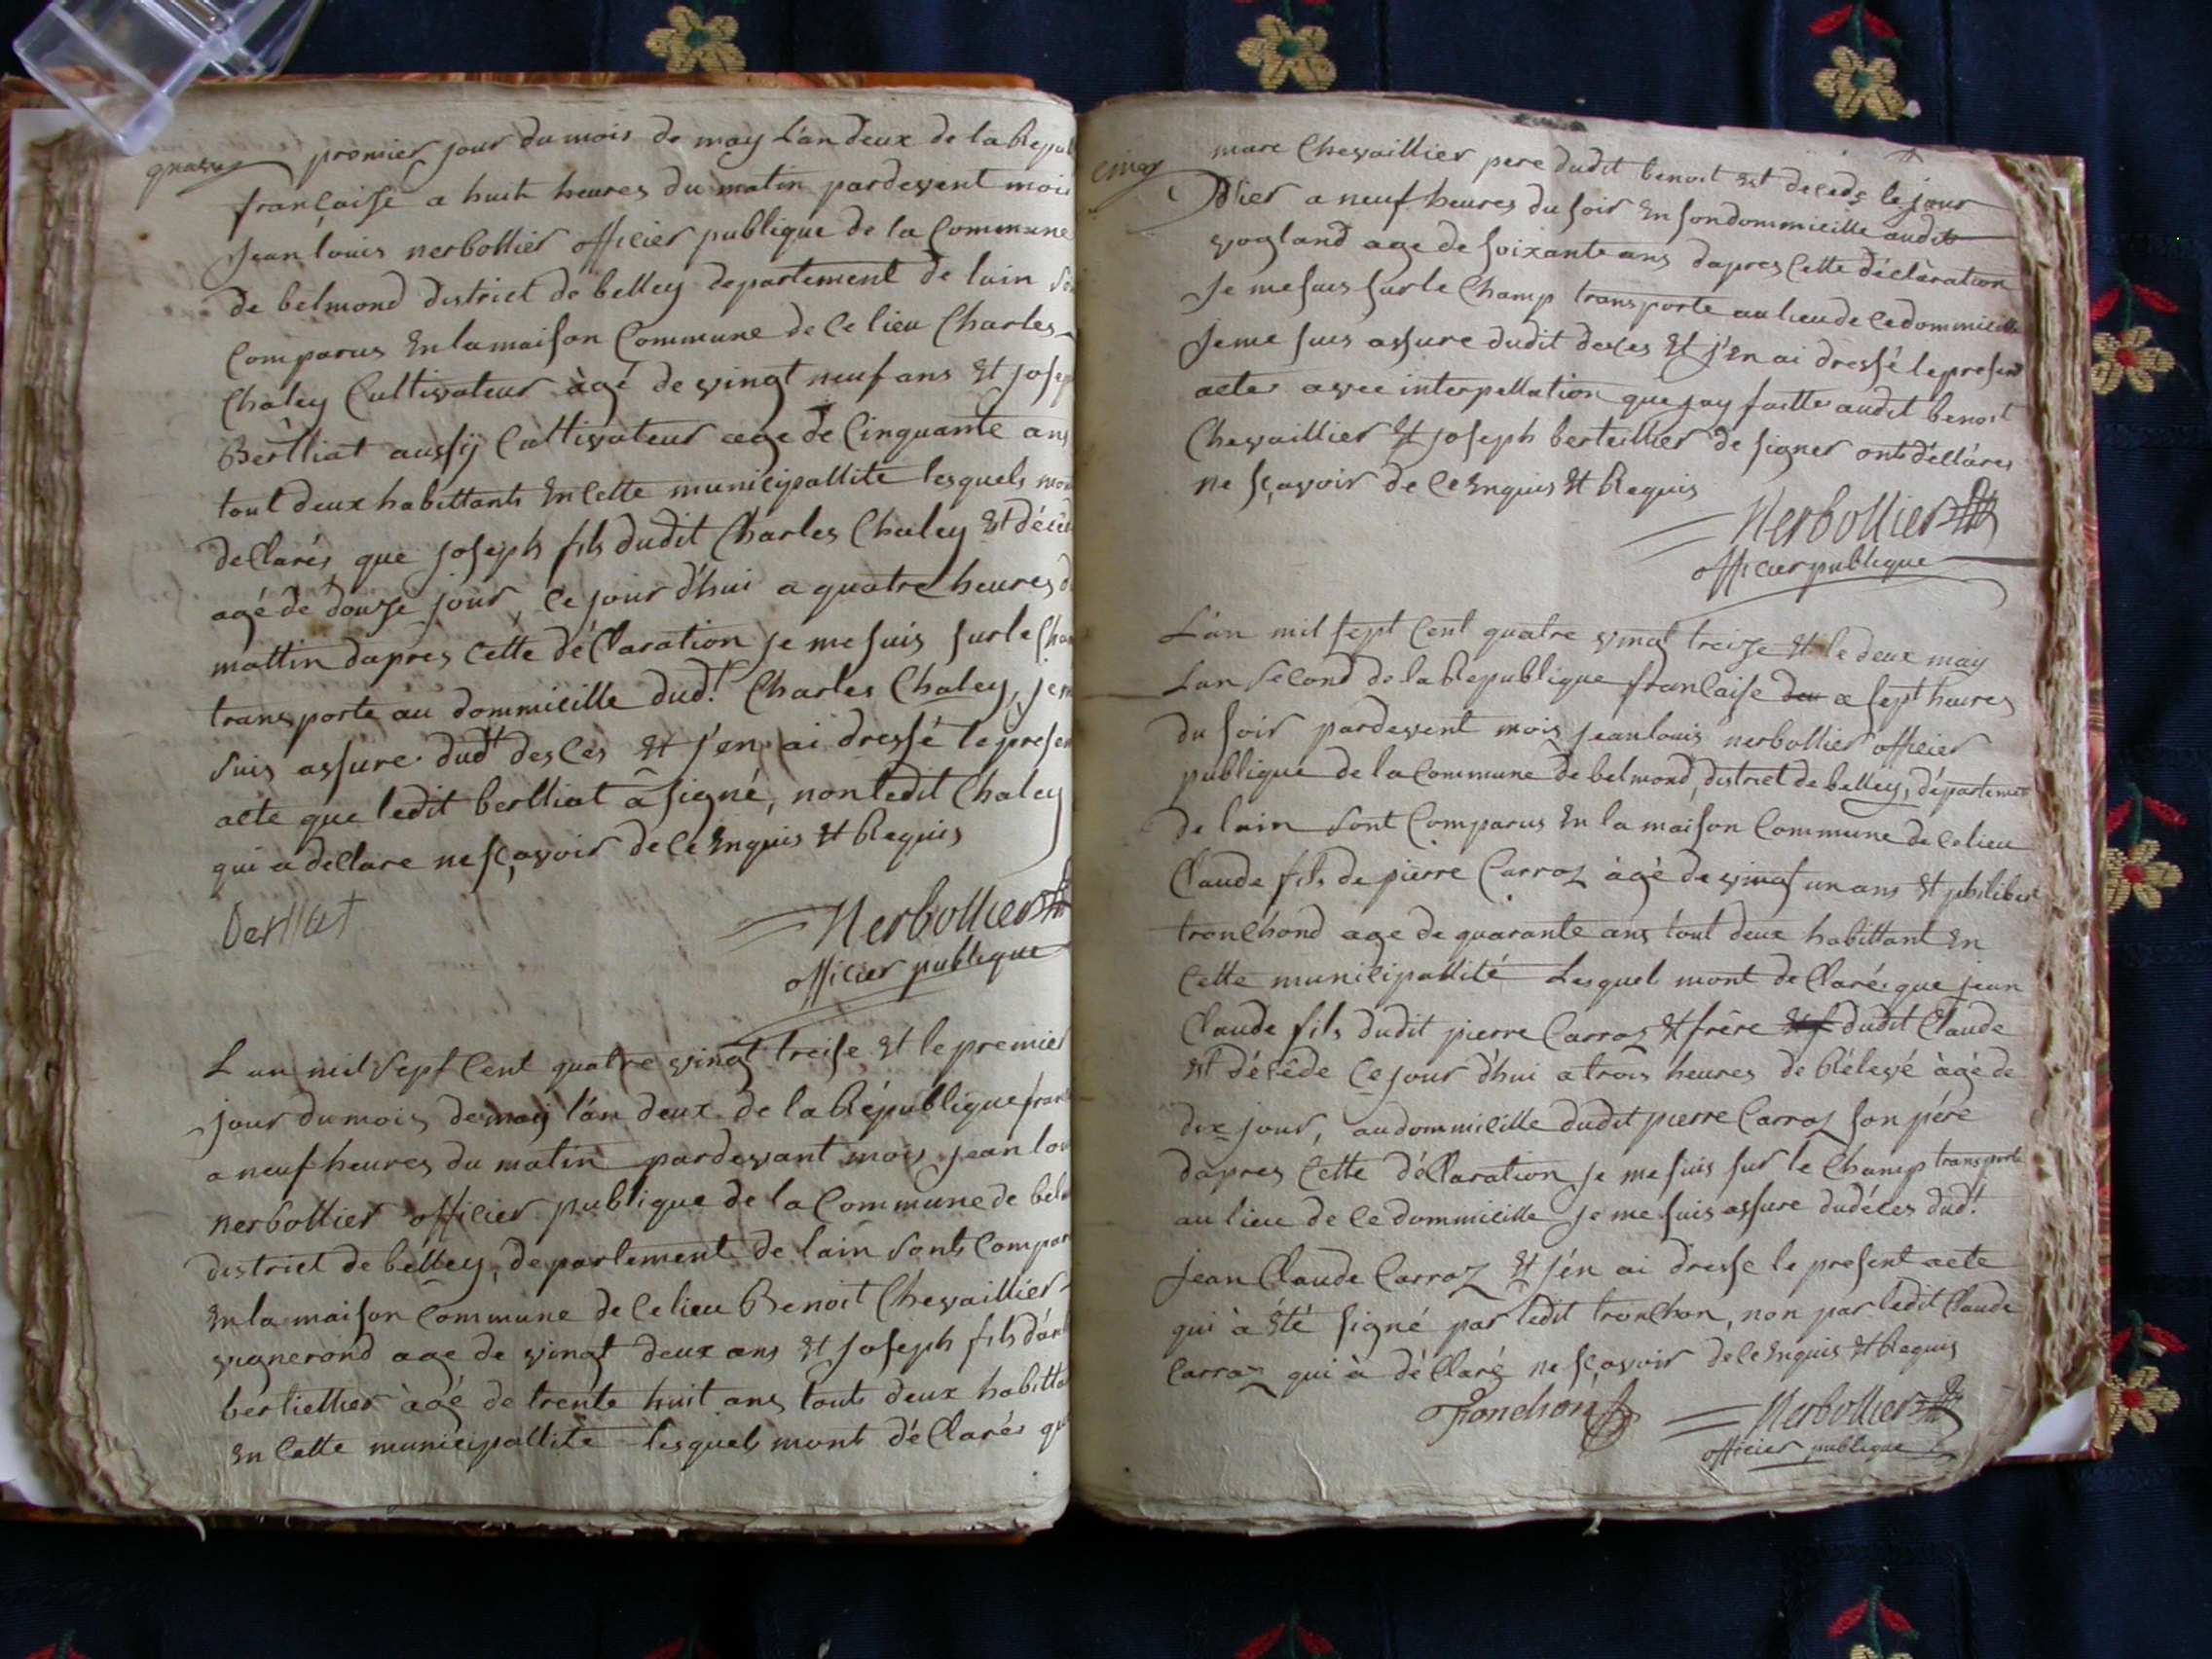 quatre
premier jour du mois de may L'an deux de la Repub
françaisse a huit heures du matin pardevent moi
Jean louis nerbollier officier publique de la Commune
de belmond district de belley departement de lain so
Comparus En la maison Commune de ce lieu Charles
Chaley Cultivateur àgé de vingt neuf ans Et josep
Berlliat aussij Cultivateur age de Cinquante ans
tout deux habittants En Cette municipallite lesquels mon
deClarés que joseph fils dudit Charles Chaley Est décéd
agé de douze jour, ce jour d'hui a quatre heures d
mattin dapres Cette déClaration je me suis sur le Cham
transporte au dommicille dud.t Charles Chaley, je m
suis assure dud.t desces Et j'en ai dressé le presen
acte que ledit berlliat à signé, non ledit Chaley
qui a deClare ne sçavoir de ce Enquis Et Requis
Berlliat
Nerbollier
officier publique
L an mil Sept Cent quatre vingt treise Et le premier
jour du mois de may l'an deux de la République franc
a neuf heures du matin pardevant mois jean lou
nerbollier officier publique de la Commune de bel
district de belley, departement de lain sont Compar
En la maison Commune de Ce lieu Benoit Chevaillier
vignerond age de vingt deux ans Et joseph fils d'an
bertiellier àgé de trente huit ans touts deux habitta
En Cette municipallité lesquels mont déClarés qu
cinq
marc Chevaillier pere dudit benoit Est decede le jour
D'ier a neuf heures du soir En son dommicille audit
vogland age de soixante ans dapres Cette déclaration
Je me suis sur le Champ transporte au lieu de ce dommicille
Je me suis assure dudit desces Et j'En ai dressé le present
acte avec interpellation que jay faitte audit benoit
Chevaillier Et joseph bertellier de signer onts déClares
ne sçavoir de ce Enquis Et Requis
Nerbollier
officier publique
L'an mil sept Cent quatre vingt treize Et le deux may
L'an second de la Republique françaisse a sept heures
du soir pardevent mois jean louis nerbollier officier
publique de la Commune de belmond, district de belley, départemen
de lain sont Comparus En la maison Commune de ce lieu
Claude fils de pierre Carroz àgé de vingt un ans Et philibert
tronChond age de quarante ans tout deux habittant En
Cette municipallité Lesquel mont deClarés que jean
Claude fils dudit pierre Carroz Et frère dudit Claude
Est décéde Ce jour d'hui a trois heures de Rélevé àgé de
dix jour, au dommicille dudit pierre Carroz son père
dapres Cette déClaration je me suis sur le Champ transporte
au lieu de Ce dommicille je me suis assure du déces dud.t
jean Claude Carroz Et j'én ai dresse le present acte
qui à été signé par ledit tronChon, non par ledit Claude
Carroz qui à déClaré ne sçavoir de ce Enquis Et Requis
Tronchon
Nerbollier
officier publique